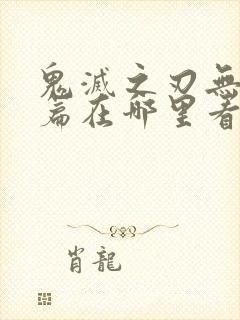 鬼滅之刃無
篇在哪里看
肖龍